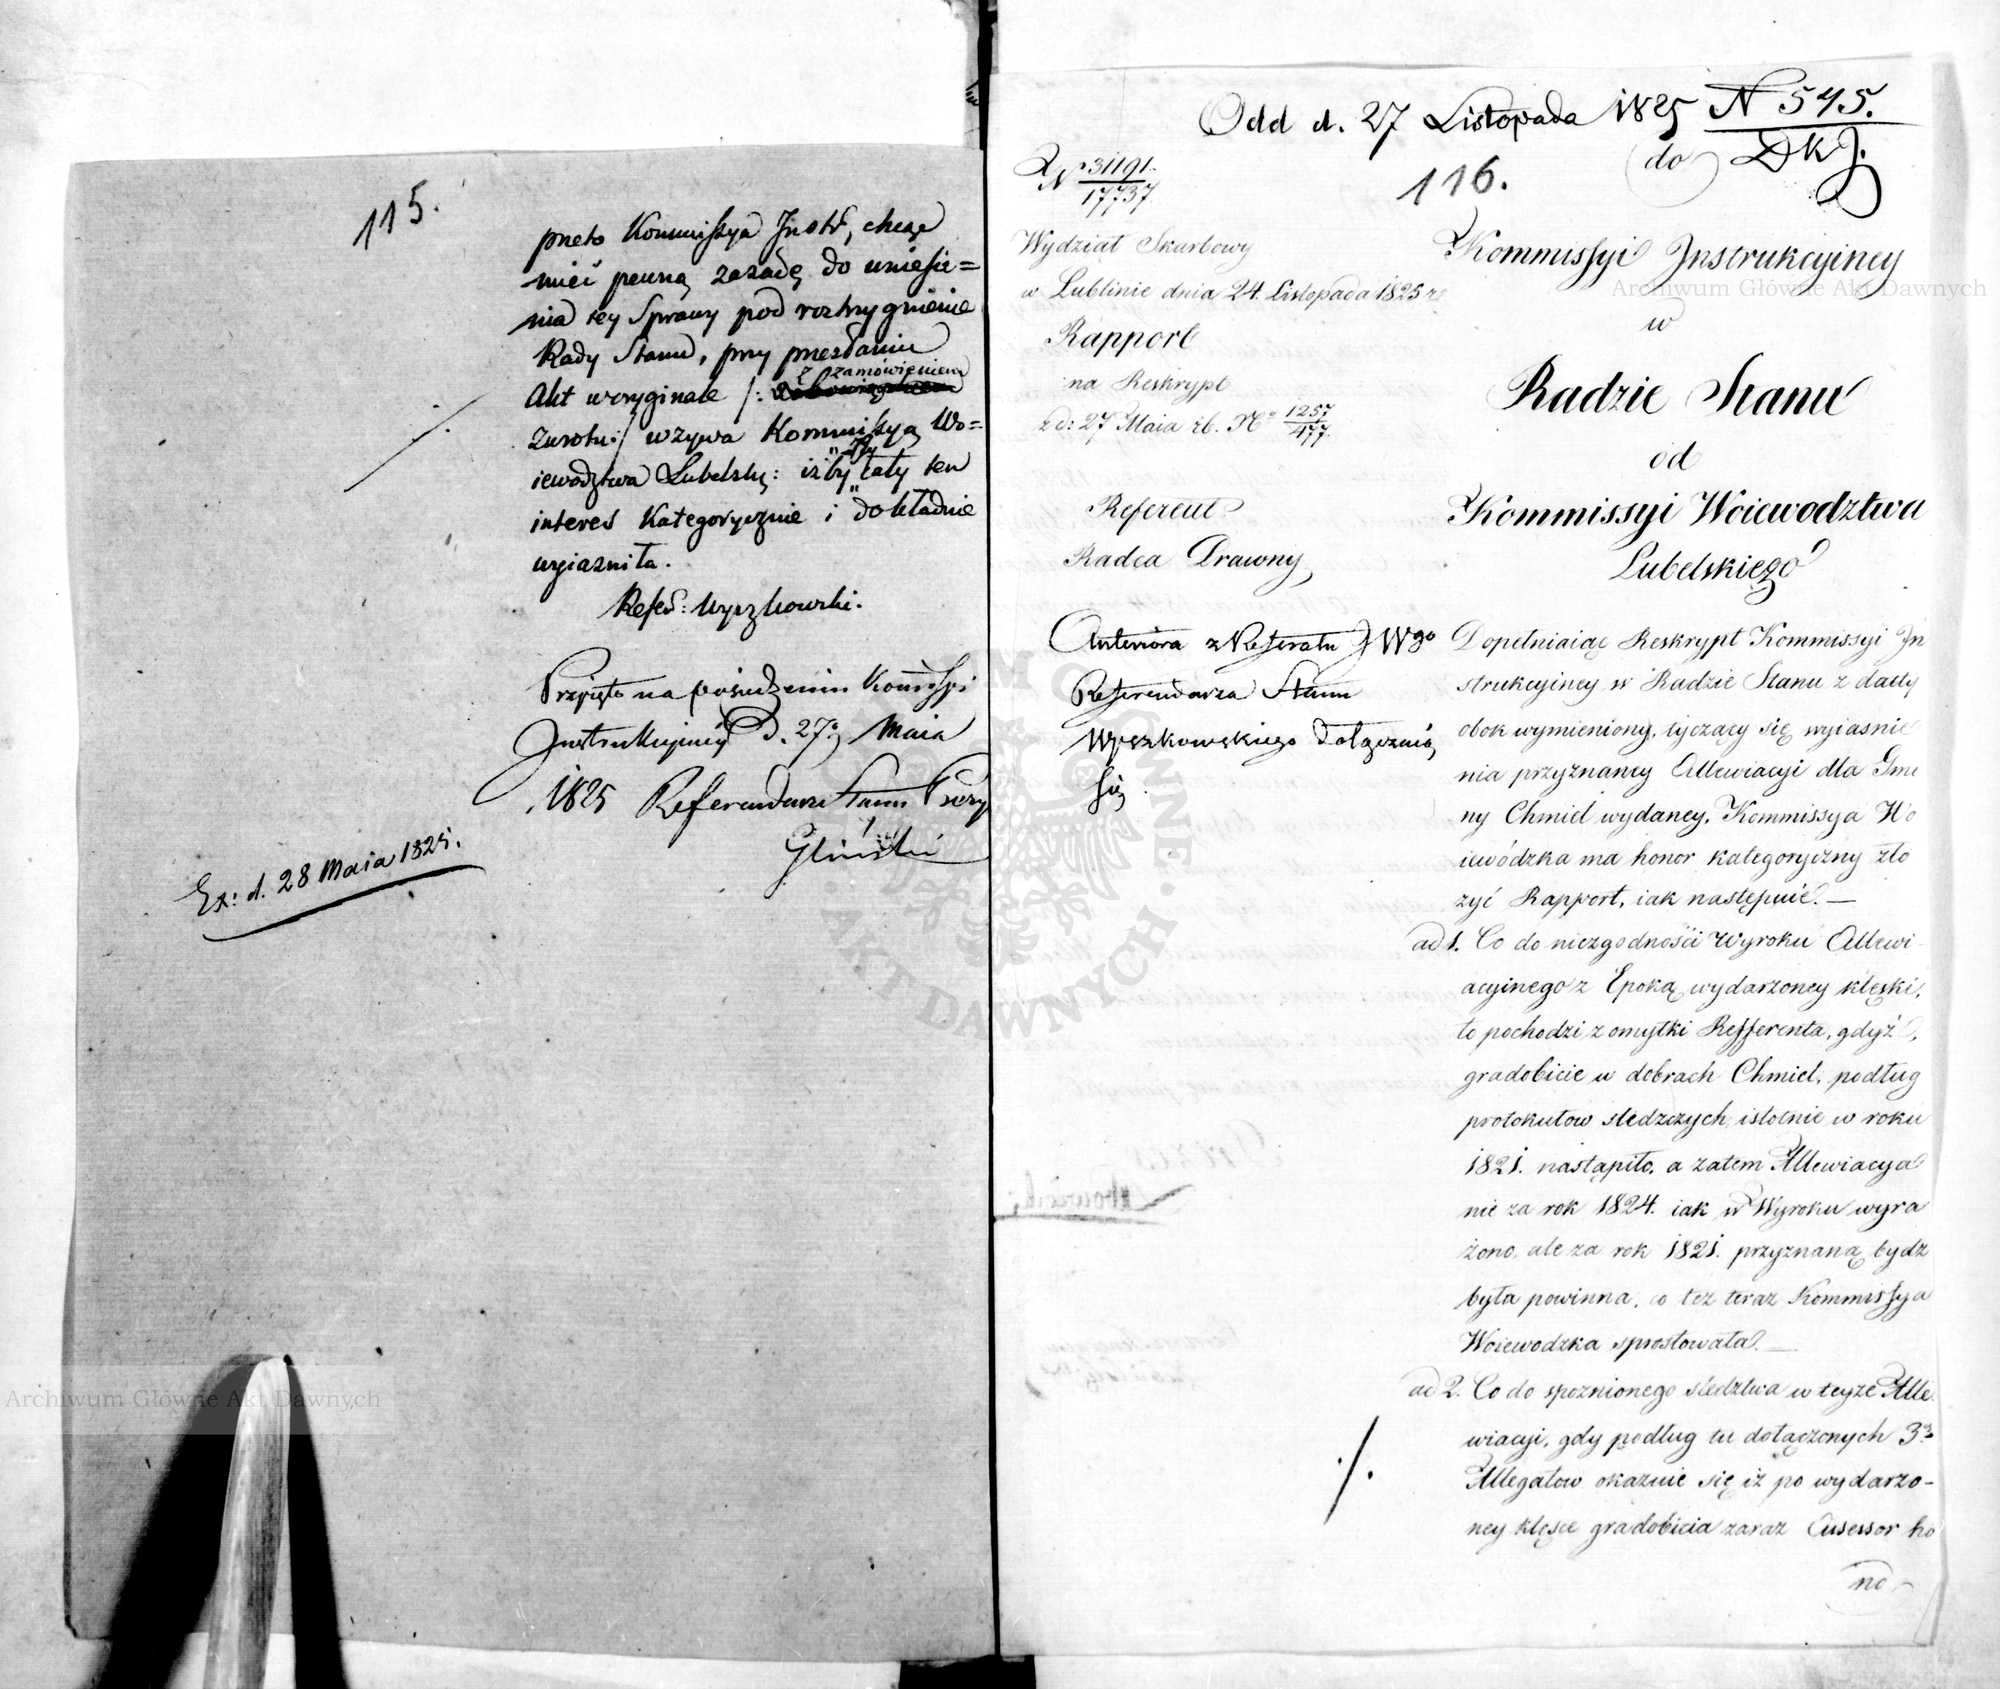 115.
przeto Kommissya Instr, chcąc
mieć pewną zasadę do wniesie=
nia tey Sprawy pod roztrzygnienie
Rady Stanu, przy przesłaniu
z zamówieniem
Akt w oryginale /:
Zwrotu:/ wzywa Kommissyą Wo=
iewodztwa Lubelsk: iżby cały ten
interes kategorycznie i dokładnie
wyiaśniła.
Refer: Wyszkowski.
Przyięto na posiedzeniu Kommissyi
Instrukcyiney D. 27. Maia
1825 Referendarz Stanu Prezy
Gliński
Ex: d. 28 Maia 1825.
Odd d. 27 Listopada 1825 N 545.
do DKJ.
116.
N 31191.
17737.
Wydział Skarbowy
w Lublinie dnia 24. Listopada 1825 r
Rapport
na Reskrypt
z d: 27 Maia rb. No 1257.
477.
Referent
Radca Prawny
Anteriora z Referatu JWgo
Referendarza Stanu
Wyszkowskiego dołączaią
się
Kommissyi Instrukcyiney
w
Radzie Stanu
od
Kommissyi Woiewodztwa
Lubelskiego
Dopełniaiąc Reskrypt Kommissyi In
strukcyiney w Radzie Stanu z daty
obok wymieniony, tyczący się wyiaśnie
nia przyznaney Allewiacyi dla Gmi
ny Chmiel wydaney, Kommissya Wo
iewódzka ma honor kategoryczny zło
zyć Rapport, iak następuie. —
ad 1. Co do niezgodności Wyroku Allewi-
acyinego z Epoką wydarzoney klęski,
to pochodzi z omyłki Refferenta, gdyż
gradobicie w dobrach Chmiel, podług
protokułow śledzczych, istotnie w roku
1821. nastąpiło, a zatem Allewiacya
nie za rok 1824. iak w Wyroku wyra
żono, ale za rok 1821. przyznaną bydz
była powinna, co też teraz Kommissya
Woiewodzka sprostowała. —
ad 2. Co do spoznionego śledztwa w teyże Alle
wiacyi, gdy podług tu dołączonych 3ch
Allegatow okazuie się iż po wydarzo-
ney klęsce gradobicia zaraz Assessor ho
no-
Archiwum Główne Akt Dawnych
Archiwum Główne Akt Dawnych
AKT DAWNYCH